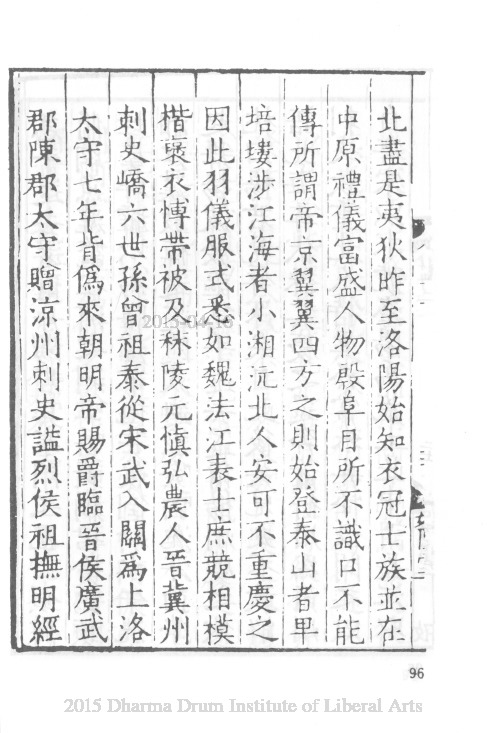 北盡是夷狄昨至洛陽始知衣冠士族並在
中原禮儀富盛人物殷阜目所不識口不能
傳所謂帝京翼翼四方之則始登泰山者卑
培塿涉江海者小湘沅北人安可不重慶之
因此羽儀服式悉如魏法江表士庶競相模
楷襃衣博帶被及秣陵元愼弘農人晉冀州
刺史嶠六世孫曾祖泰從宋武入關爲上洛
太守七年背僞來朝明帝賜爵臨晉侯廣武
郡陳郡太守贈涼州刺史謚烈侯祖撫明經
2015-04-16
96
2015 Dharma Drum Institute of Liberal Arts